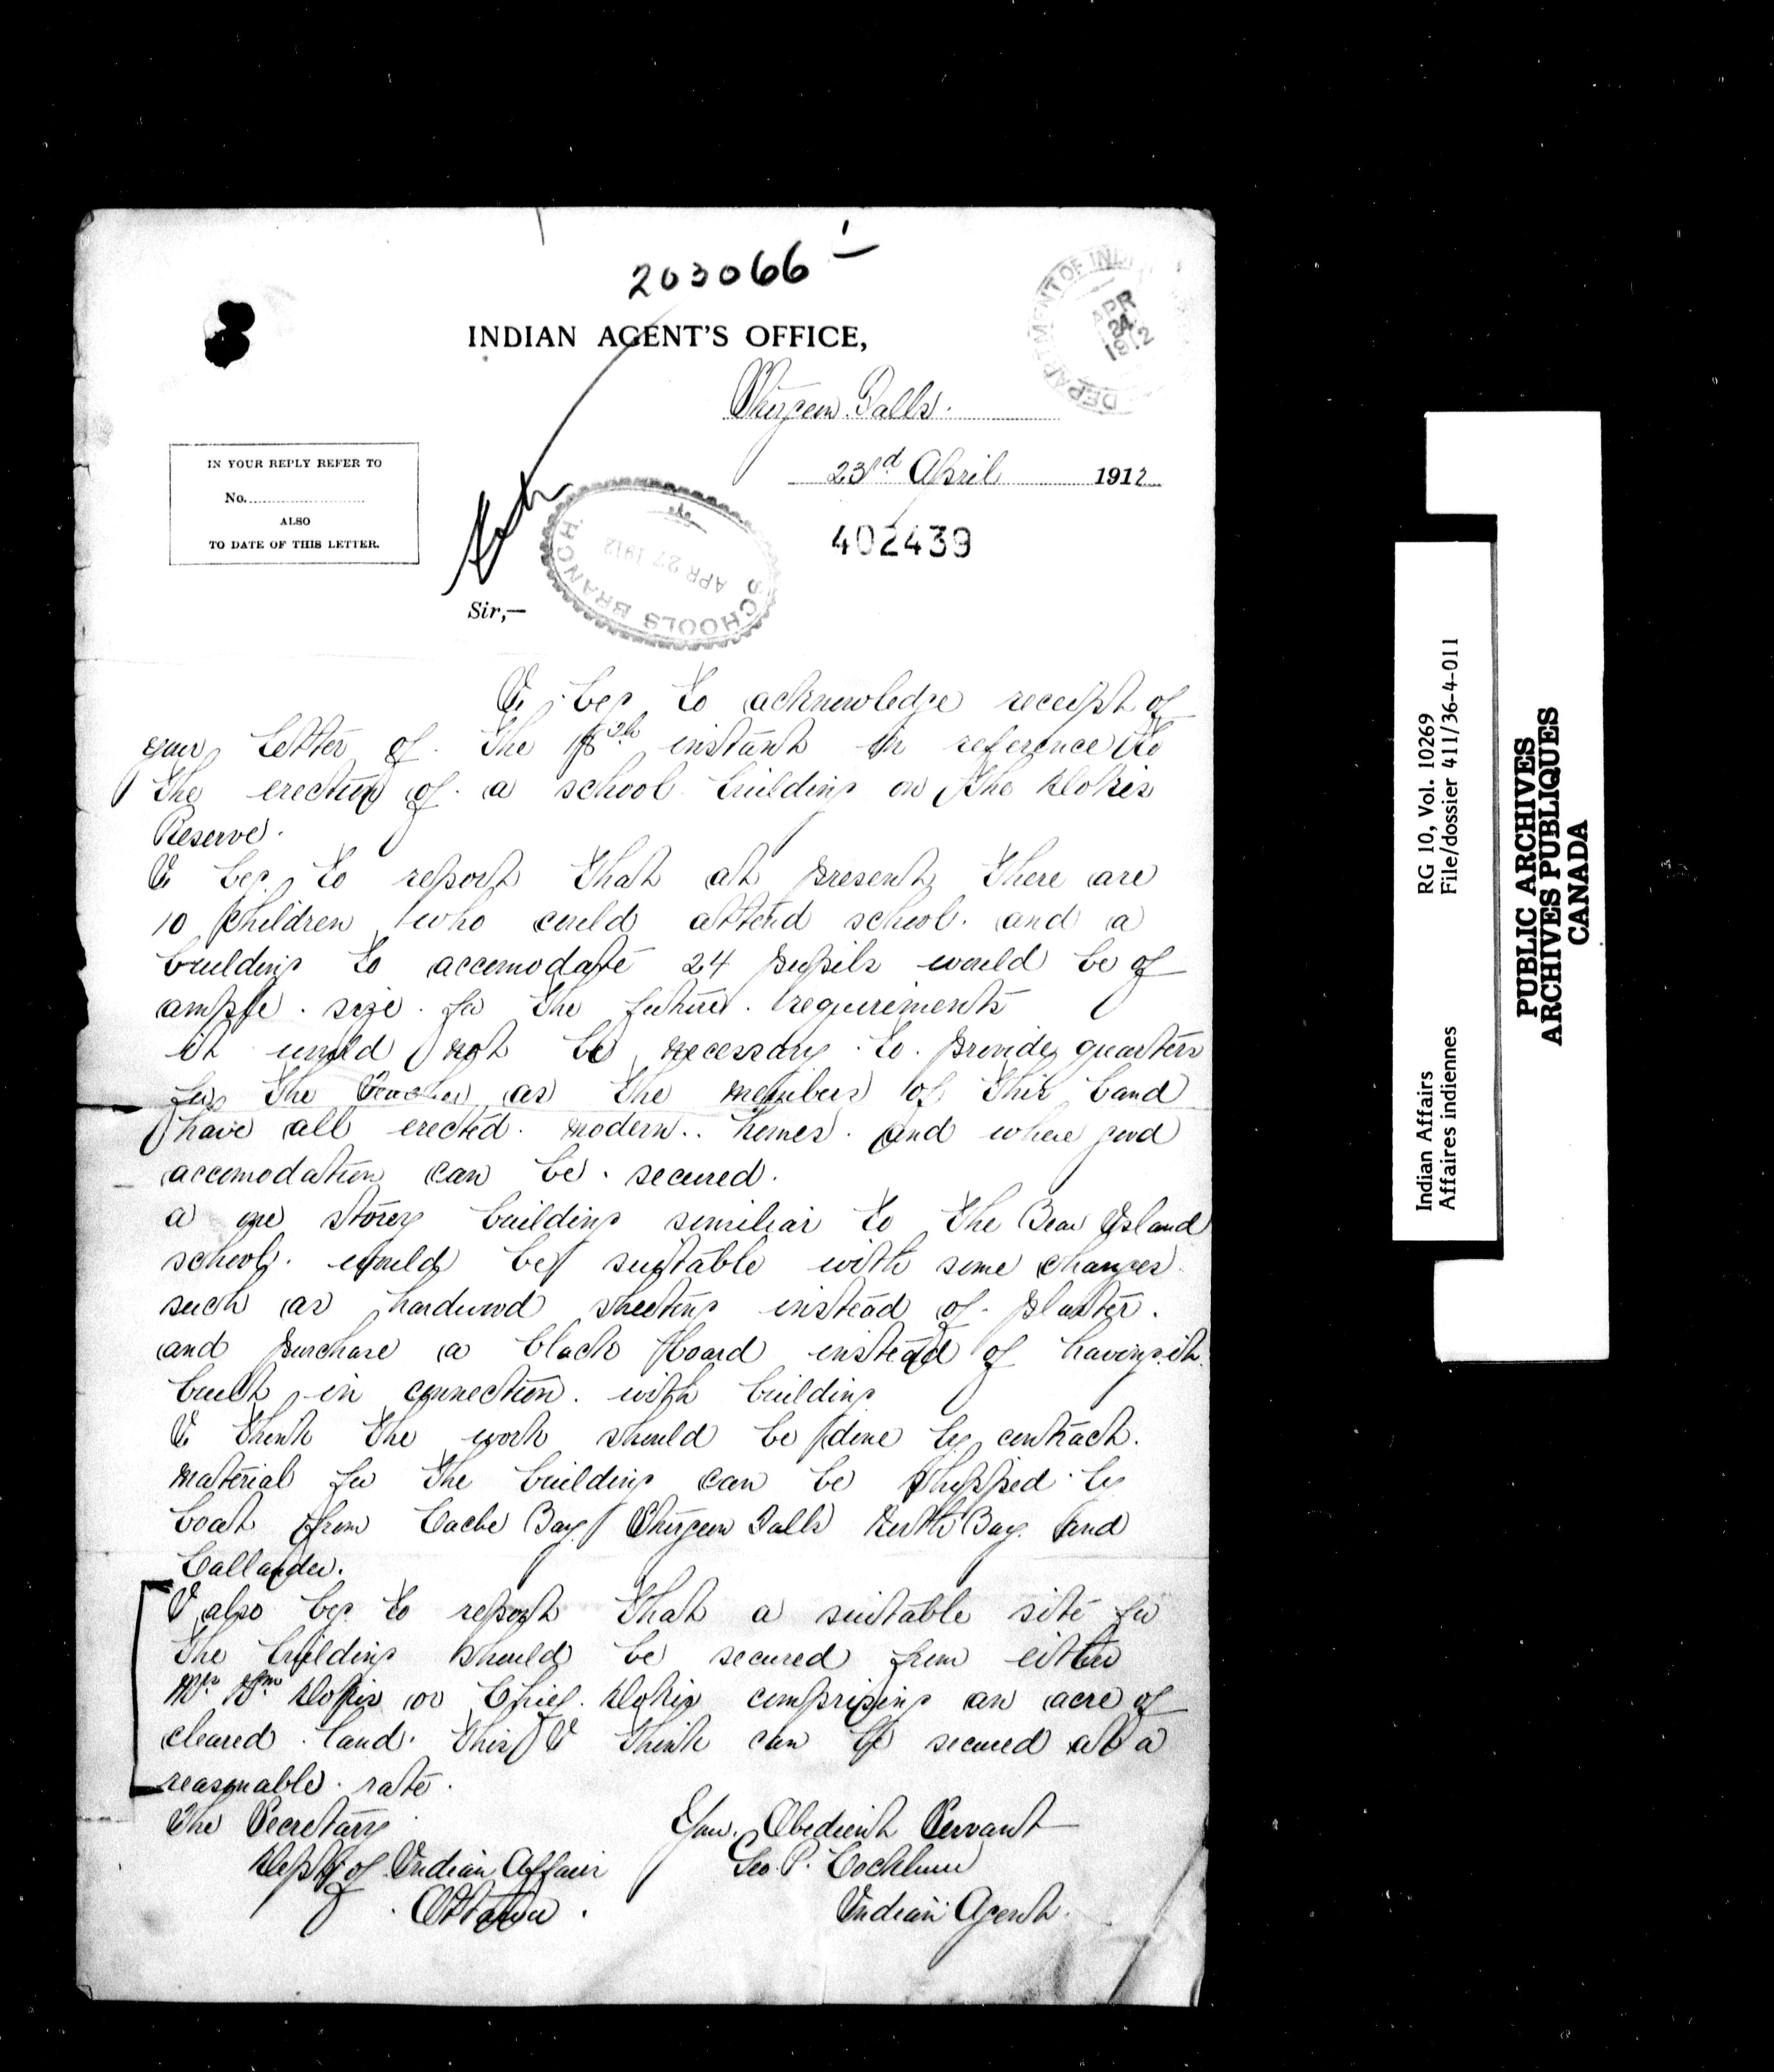 203066
INDIAN AGENT'S OFFICE,
DEPARTMENT OF INDI
APR
24
1912
Sturgeon Falls.
23rd April 1912
IN YOUR REPLY REFER TO
No.
ALSO
TO DATE OF THIS LETTER.
SCHOOLS BRANCH
APR 27 1912
402439
Sir,—
I beg to acknowledge receipt of
your letter of the 18th instant in reference to
the erection of a school building on the Dokis
Reserve.
I beg to report that at present there are
10 children who could attend school. and a
building to accomodate 24 pupils would be of
ample size for the future requirements
it would not be necessary to provide quarters
for the Teacher as the members of this band
have all erected modern homes and where good
accomodation can be secured.
a one storey building similiar to the Bear Island
school would be suitable with some changes
such as hardwood sheeting instead of plaster.
and purchase a black board instead of having it
built in connection with building
I think the work should be done by contract.
material for the building can be shipped by
boat from Cache Bay Sturgeon Falls North Bay and
Callander.
I also beg to report that a suitable site for
the building should be secured from either
Mr. Wm Dokis or Chief Dokis comprising an acre of
cleared land. this I think can be secured at a
reasonable rate.
The Secretary
Dept of Indian Affairs
Ottawa.
Your Obedient Servant
Geo. P. Cockburn
Indian Agent.
Indian Affairs RG 10, Vol. 10269
Affaires indiennes File/dossier 411/36-4-011
PUBLIC ARCHIVES
ARCHIVES PUBLIQUES
CANADA